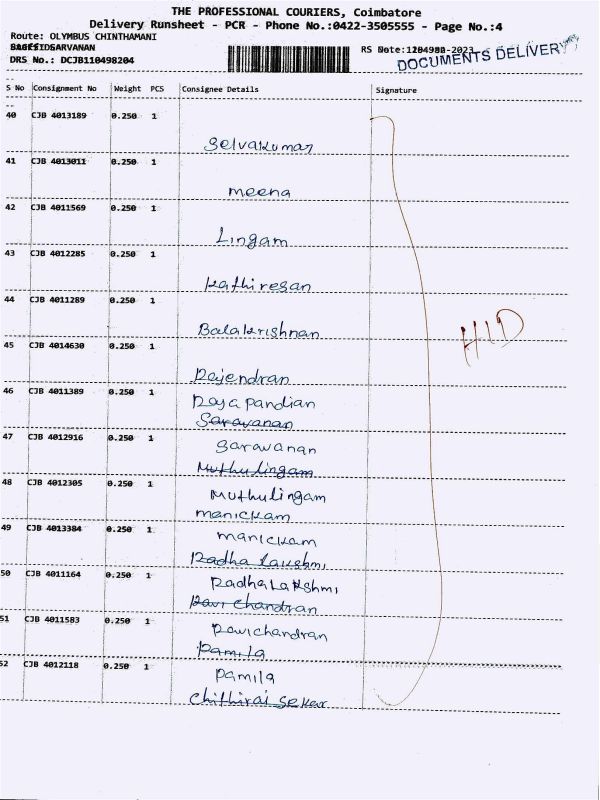 THE PROFESSIONAL COURIERS, Coimbatore
Delivery Runsheet - PCR - Phone No.:0422-3505555 - Page No.:4
Route: OLYMBUS CHINTHAMANI
SARAVANAN
DRS No.: DCJB110498204
RS
DOCUMENTS DELIVERY
S No Consignment No Weight PCS Consignee Details Signature
40 CJB 4013189 0.250 1
Selvakumar
41 CJB 4013011 0.250 1
meena
42 CJB 4011569 0.250 1
Lingam
43 CJB 4012285 0.250 1
Kathiresan
44 CJB 4011289 0.250 1
Balakrishnan
HID
45 CJB 4014630 0.250 1
Rajendran
46 CJB 4011389 0.250 1
Raja pandian
Saravanan
47 CJB 4012916 0.250 1
Saravanan
Muthulingam
48 CJB 4012305 0.250 1
Muthulingam
manickam
49 CJB 4013384 0.250 1
manickam
Radha Lakshmi
50 CJB 4011164 0.250 1
Radha Lakshmi
Ravi chandran
51 CJB 4011583 0.250 1
Ravichandran
Pamila
52 CJB 4012118 0.250 1
Pamila
Chithirai Sekar